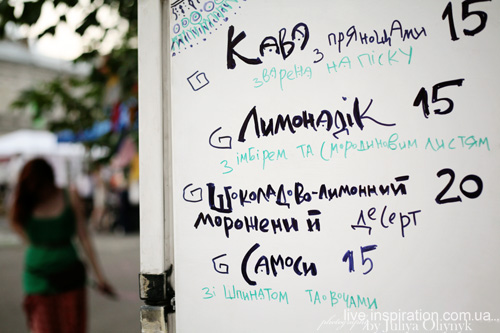 КАВА З ПРЯНОЩАМИ 15
ЗВАРЕНА НА ПІСКУ
ЛИМОНАДІК 15
З ІМБІРЕМ ТА СМОРОДИНОВИМ ЛИСТЯМ
ШОКОЛАДОВО-ЛИМОННИЙ 20
МОРОЖЕНИЙ ДЕСЕРТ
САМОСИ 15
ЗІ ШПИНАТОМ ТА ОВОЧАМИ
live.inspiration.com.ua
by Juliya Oliynyk